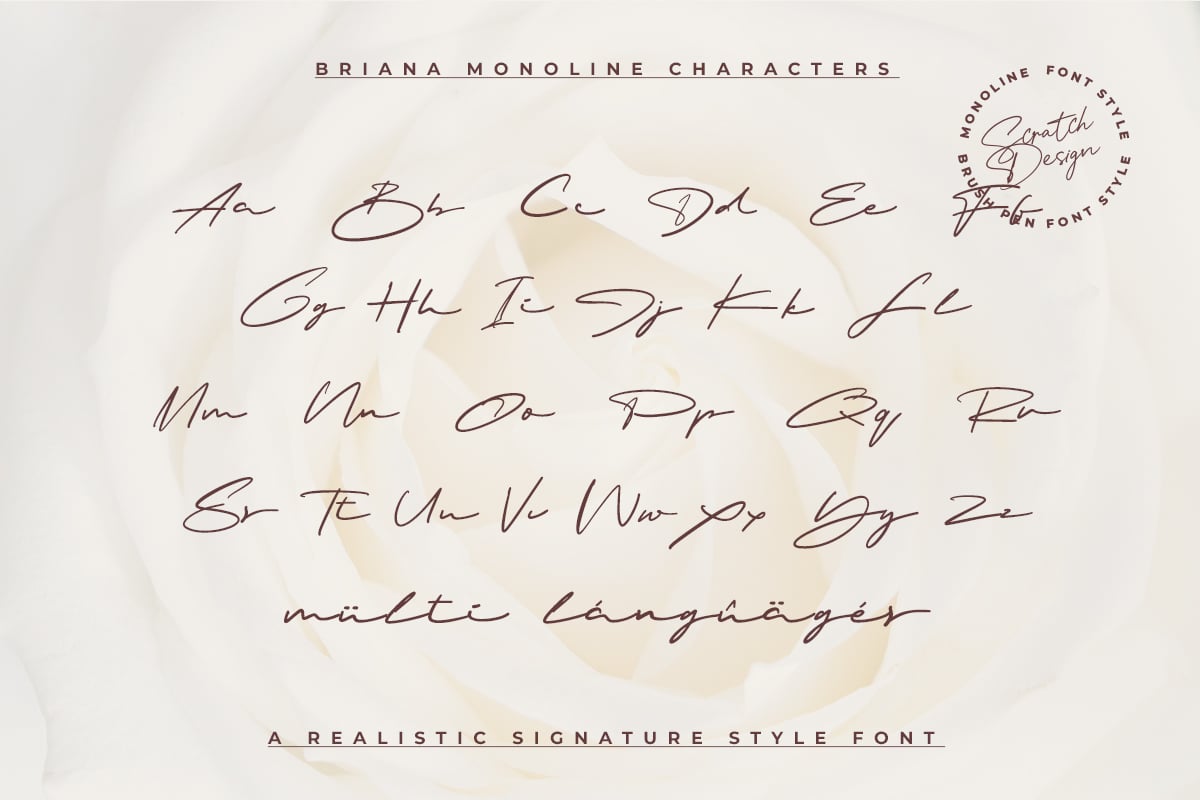 BRIANA MONOLINE CHARACTERS
MONOLINE FONT STYLE
Scratch
Design
BRUSH PEN FONT STYLE
Aa Bb Cc Dd Ee Ff
Gg Hh Ii Jj Kk Ll
Mm Nn Oo Pp Qq Rr
Ss Tt Uu Vv Ww Xx Yy Zz
mülti lángûägés
A REALISTIC SIGNATURE STYLE FONT